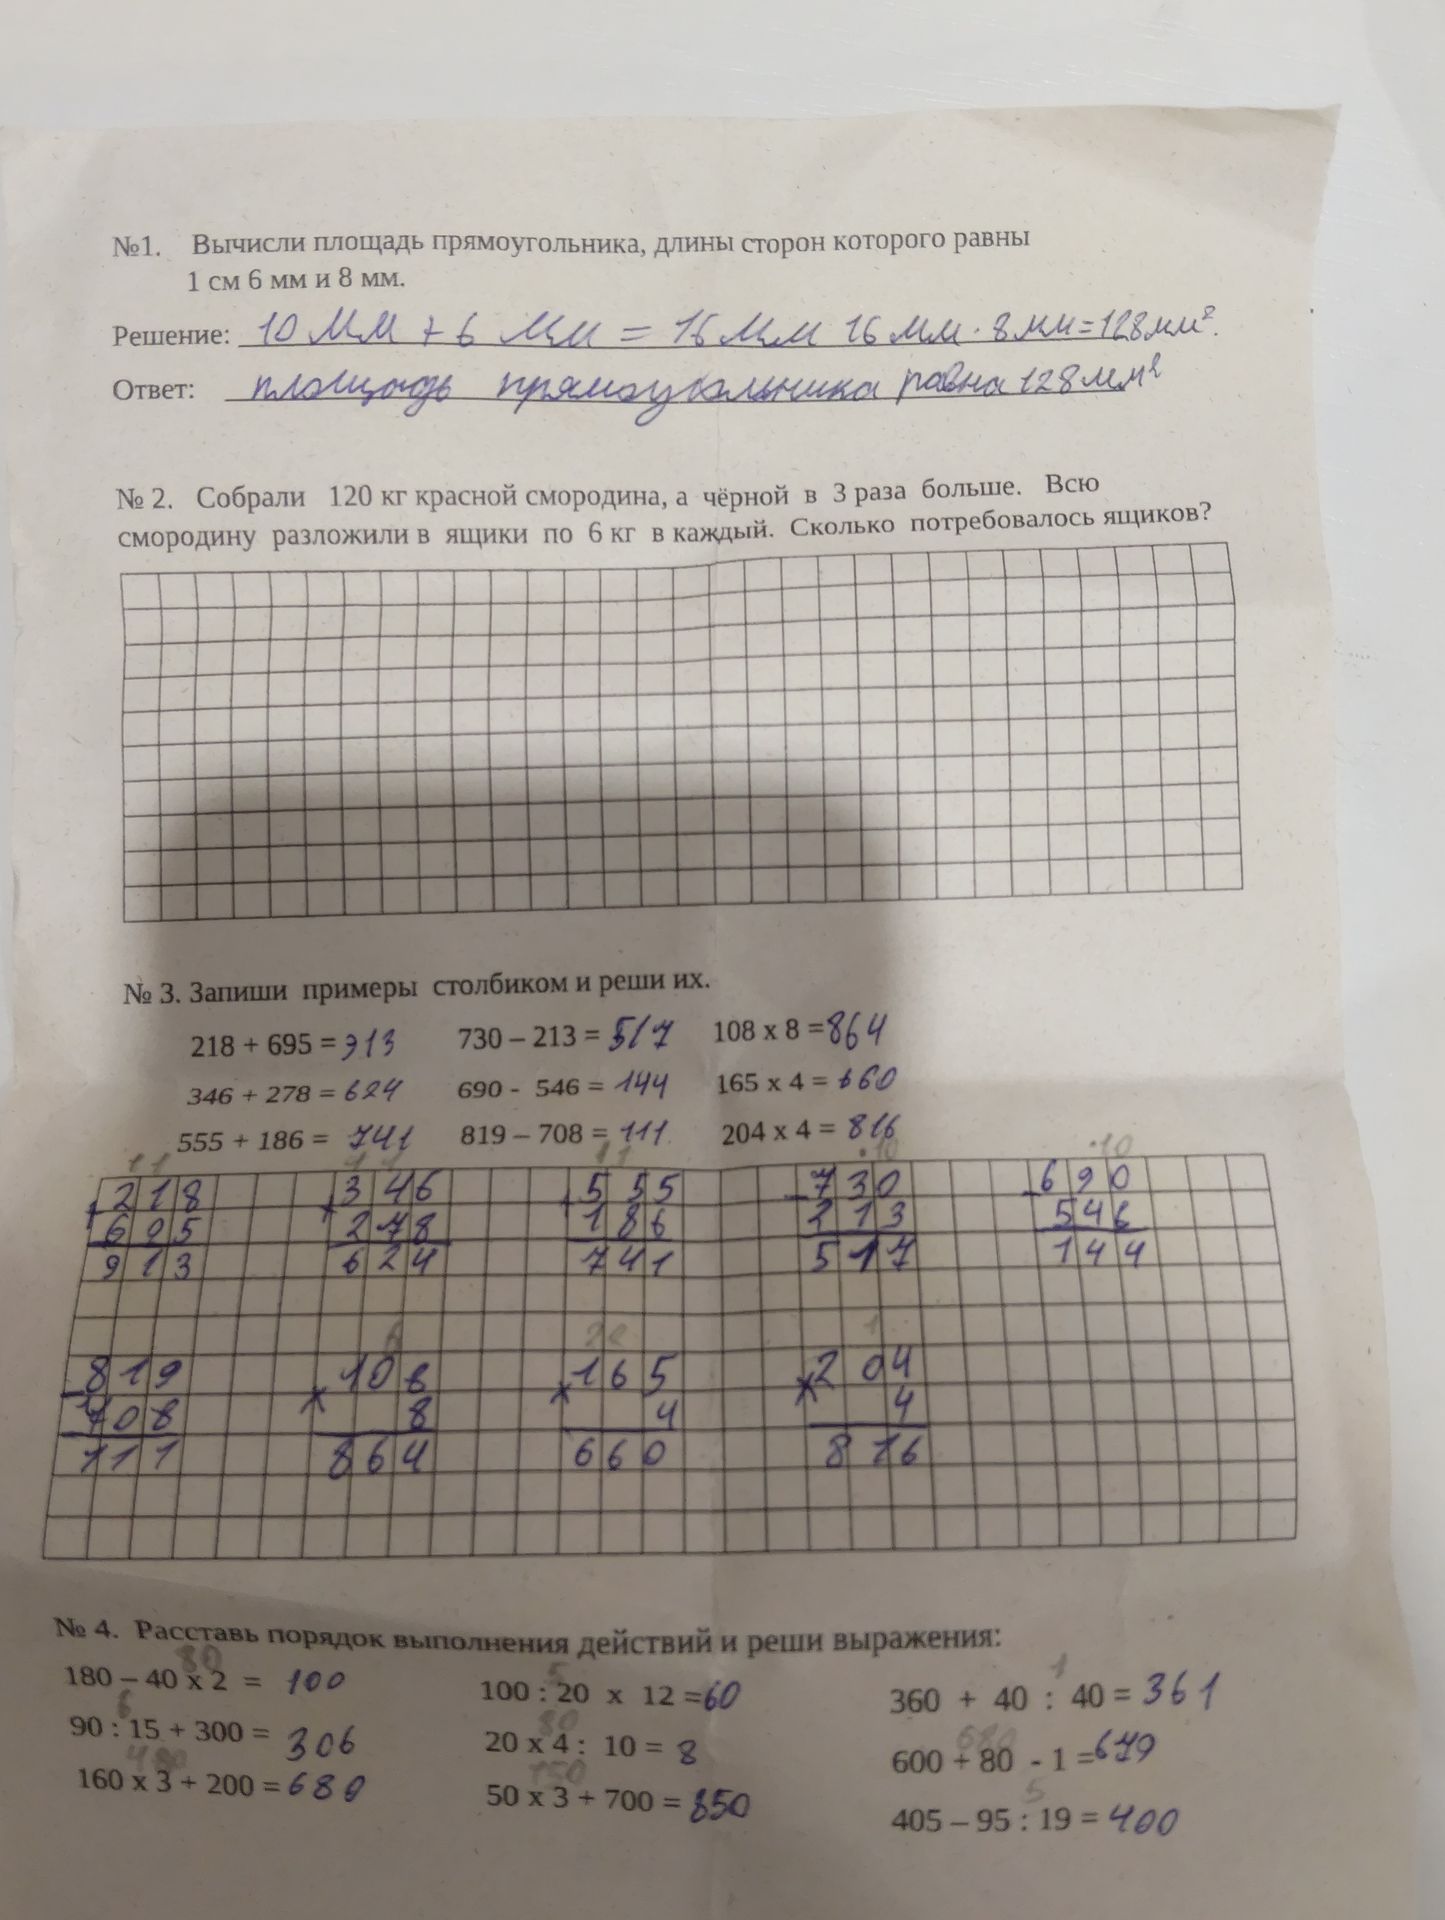 №1. Вычисли площадь прямоугольника, длины сторон которого равны
1 см 6 мм и 8 мм.
Решение: 10 мм + 6 мм = 16 мм 16 мм · 8 мм = 128 мм².
Ответ: площадь прямоугольника равна 128 мм²
№ 2. Собрали 120 кг красной смородина, а чёрной в 3 раза больше. Всю
смородину разложили в ящики по 6 кг в каждый. Сколько потребовалось ящиков?
№ 3. Запиши примеры столбиком и реши их.
218 + 695 = 913 730 – 213 = 517 108 х 8 = 864
346 + 278 = 624 690 - 546 = 144 165 х 4 = 660
555 + 186 = 741 819 – 708 = 111 204 х 4 = 816
1 1 1 1 1 1 · 10 · 10
+ 218 + 346 + 555 – 730 – 690
695 278 186 213 546
913 624 741 517 144
6 22 1
– 819 × 108 × 165 × 204
708 8 4 4
111 864 660 816
№ 4. Расставь порядок выполнения действий и реши выражения:
80 5 1
180 – 40 х 2 = 100 100 : 20 х 12 = 60 360 + 40 : 40 = 361
6 80 680
90 : 15 + 300 = 306 20 х 4 : 10 = 8 600 + 80 - 1 = 679
480 150 5
160 х 3 + 200 = 680 50 х 3 + 700 = 850 405 – 95 : 19 = 400